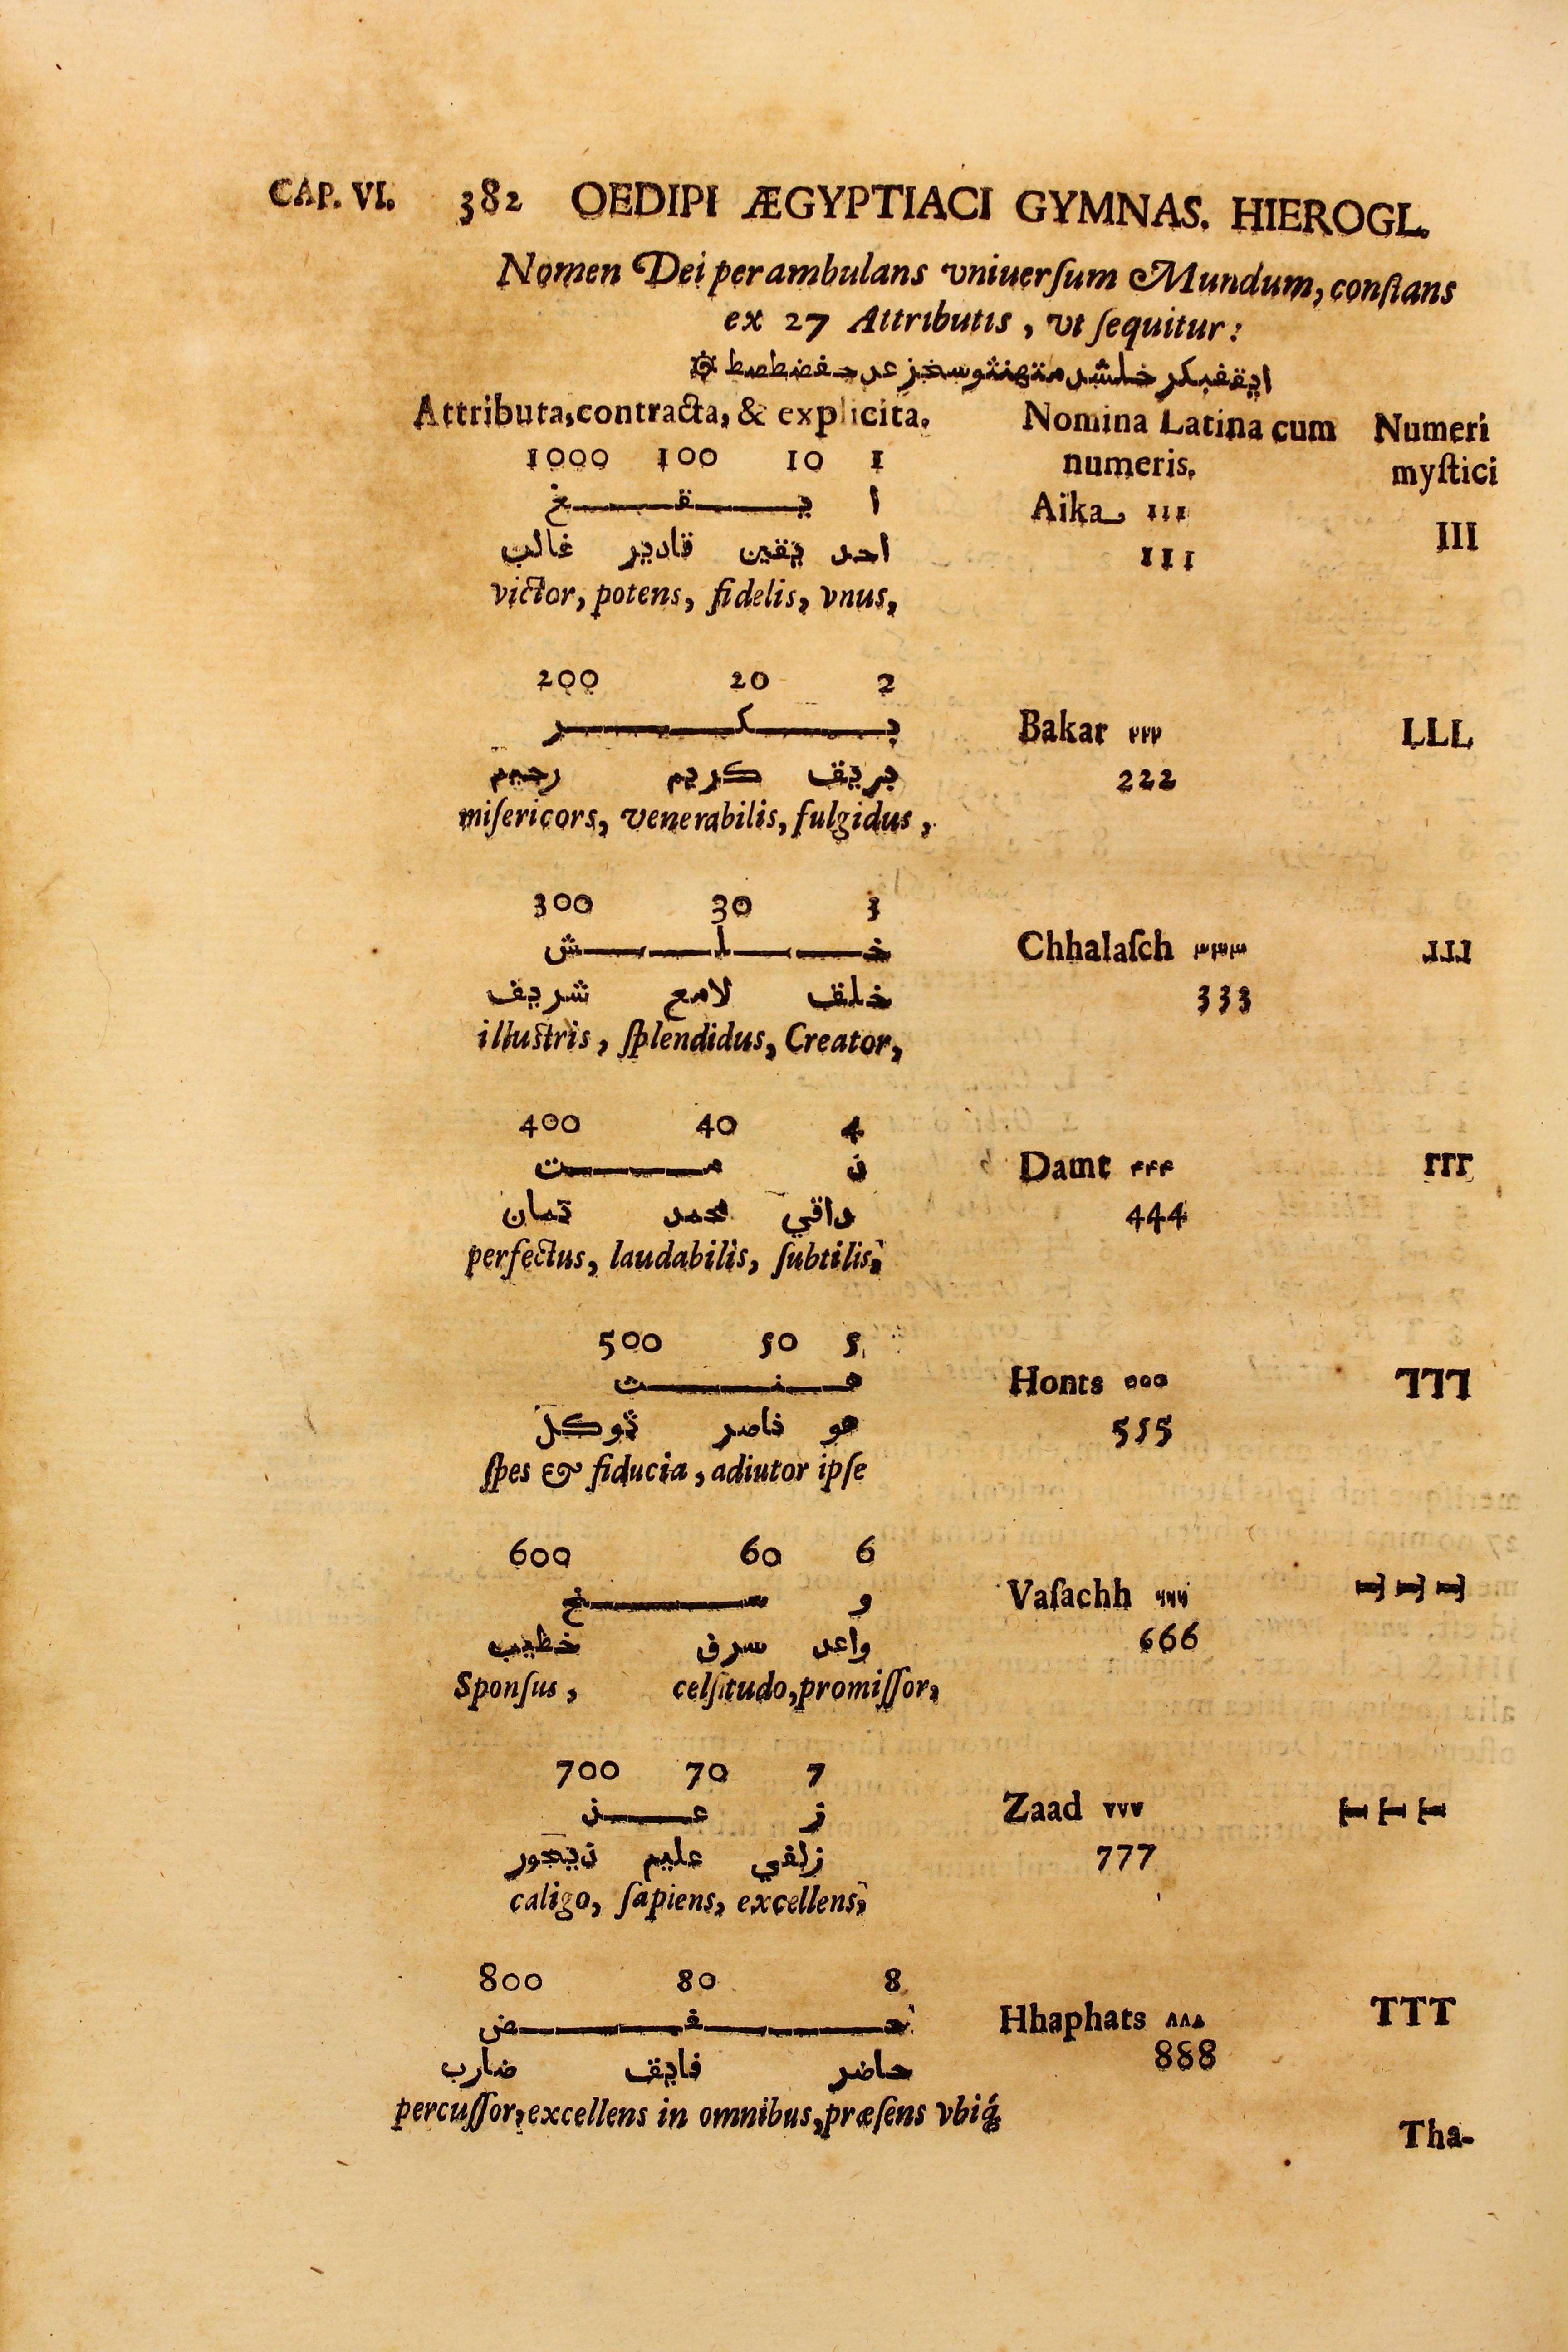 CAP. VI. 382 OEDIPI ÆGYPTIACI GYMNAS. HIEROGL.
Nomen Dei perambulans vniuerſum Mundum, conſtans
ex 27 Attributis, vt ſequitur:
Attributa, contracta, & explicita. Nomina Latina cum numeris. Numeri myſtici
1000 100 10 1
ا يـــقـــغ
Aika ١١١ III
احد يقين قادير غالب
111
victor, potens, fidelis, vnus,
200 20 2
بـــكـــر
Bakar ٢٢٢ LLL
بريق كريم رحيم
222
miſericors, venerabilis, fulgidus,
300 30 3
خـــلـــش
Chhalaſch ٣٣٣
خلق لامع شريف
333
illuſtris, ſplendidus, Creator,
400 40 4
Damt ۴۴۴
داقي محمد تمان
444
perfectus, laudabilis, ſubtilis,
500 50 5
هـــنـــث
Honts ٥٥٥
هو ناصر ثوكل
555
ſpes & fiducia, adiutor ipſe
600 60 6
و ســـخ
Vaſachh
واعد سرف خطيب
666
Sponſus, celſitudo, promiſſor,
700 70 7
ز عـــذ
Zaad ٧٧٧
زلفي عليم
777
caligo, ſapiens, excellens,
800 80 8
حـــفـــض
Hhaphats ٨٨٨ TTT
حاضر فايق ضارب
888
percuſſor, excellens in omnibus, præſens vbiq́;
Tha-